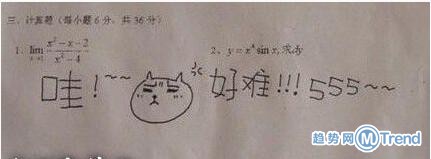 三、计算题（每小题6分，共36分）
1. lim x²-x-2 / x²-4
2、y=x⁴sin x,求dy
哇!~~
好难!!!555~~
趋势网 Trend